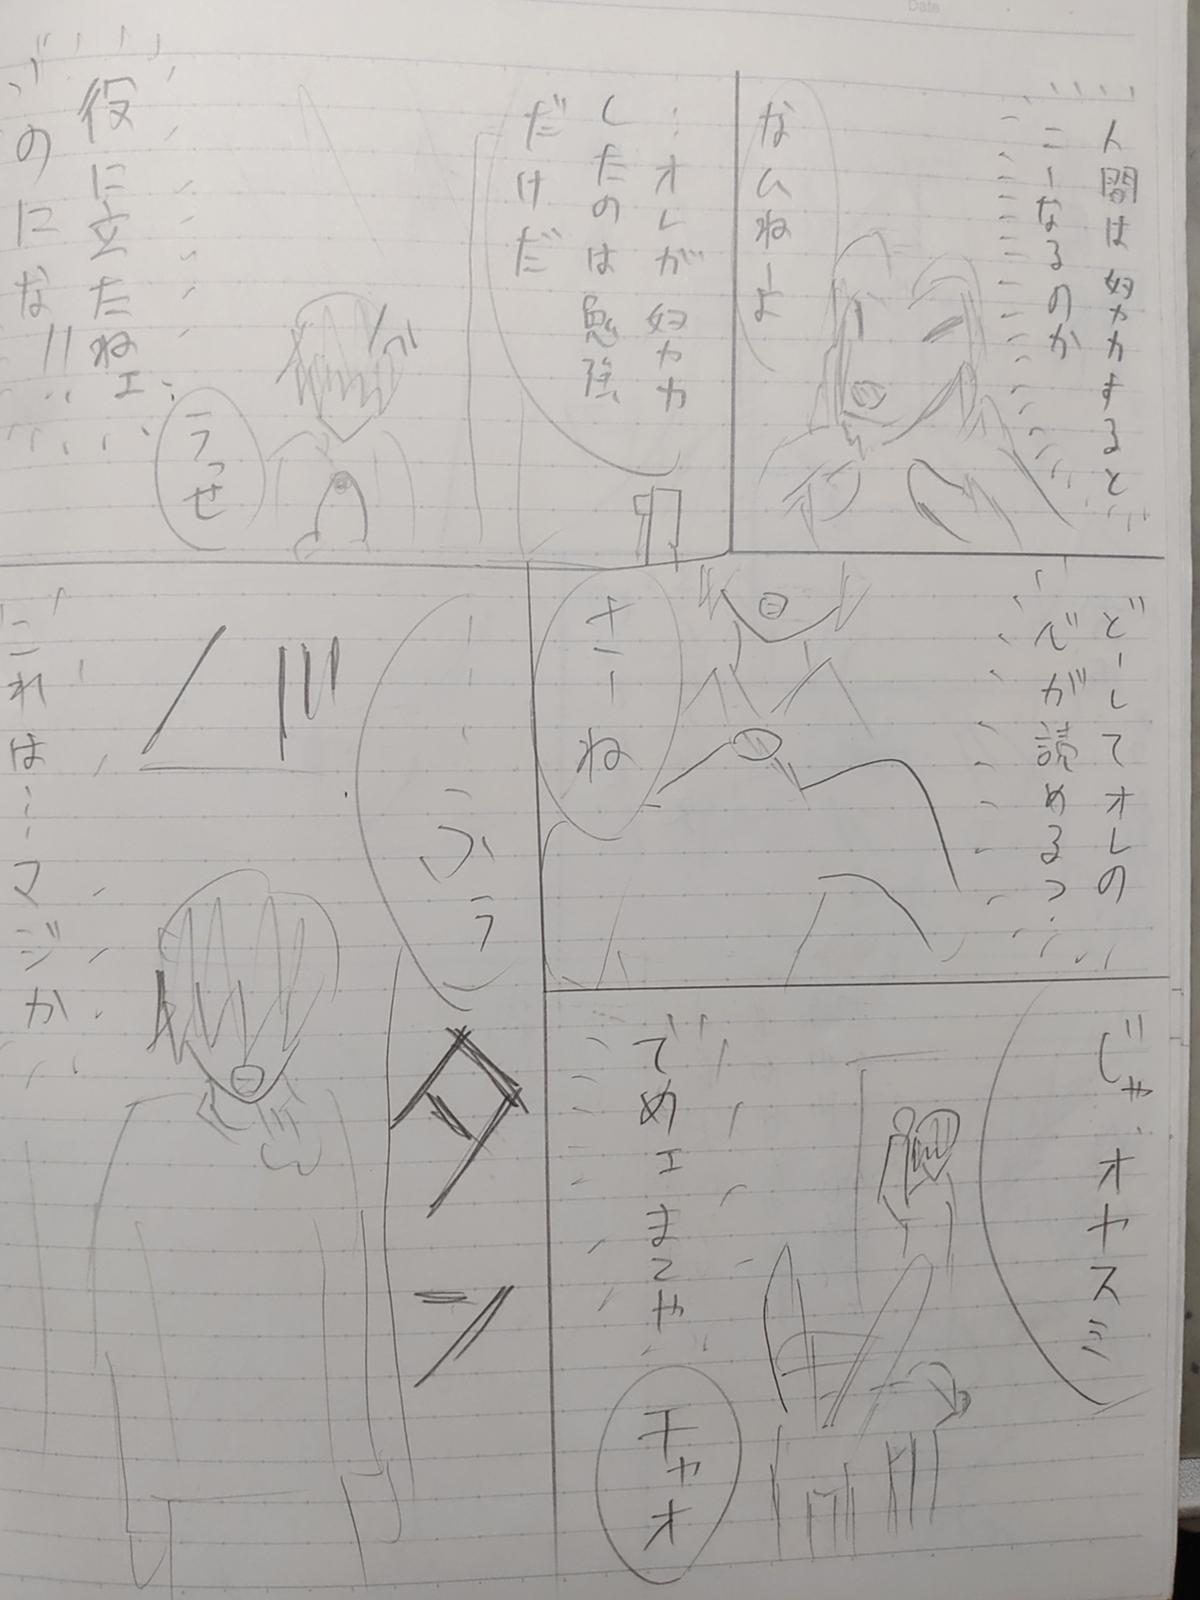 Date
人間は努力すると
こーなるのか
なんねーよ
…オレが努力
したのは勉強
だけだ
役に立たねェ
のにな!!
うっせ
どーしてオレの
心が読めるっ
さーね
……
じゃ、オヤスミ
てめェまてや
チャオ
バ
タン
これは…マジか